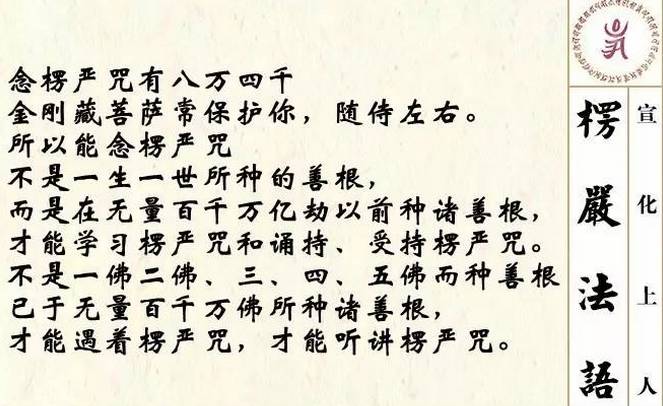 念楞严咒有八万四千
金刚藏菩萨常保护你，随侍左右。
所以能念楞严咒
不是一生一世所种的善根，
而是在无量百千万亿劫以前种诸善根，
才能学习楞严咒和诵持、受持楞严咒。
不是一佛二佛、三、四、五佛而种善根
已于无量百千万佛所种诸善根，
才能遇着楞严咒，才能听讲楞严咒。
楞嚴法語
宣化上人